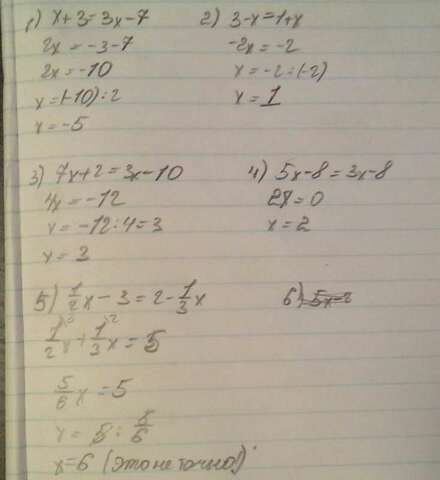 1) x+3=3x-7 2) 3-x=1+x
2x = -3-7 -2x = -2
2x = -10 x = -2:(-2)
x=(-10):2 x = 1
x = -5
3) 7x+2=3x-10 4) 5x-8=3x-8
4x = -12 2x=0
x = -12:4=3 x=2
x = 3
5) 1/2x - 3 = 2 - 1/3x 6) 5x-2
1/2x + 1/3x = 5
5/6x = 5
x = 5 : 5/6
x=6 (это не точно!)